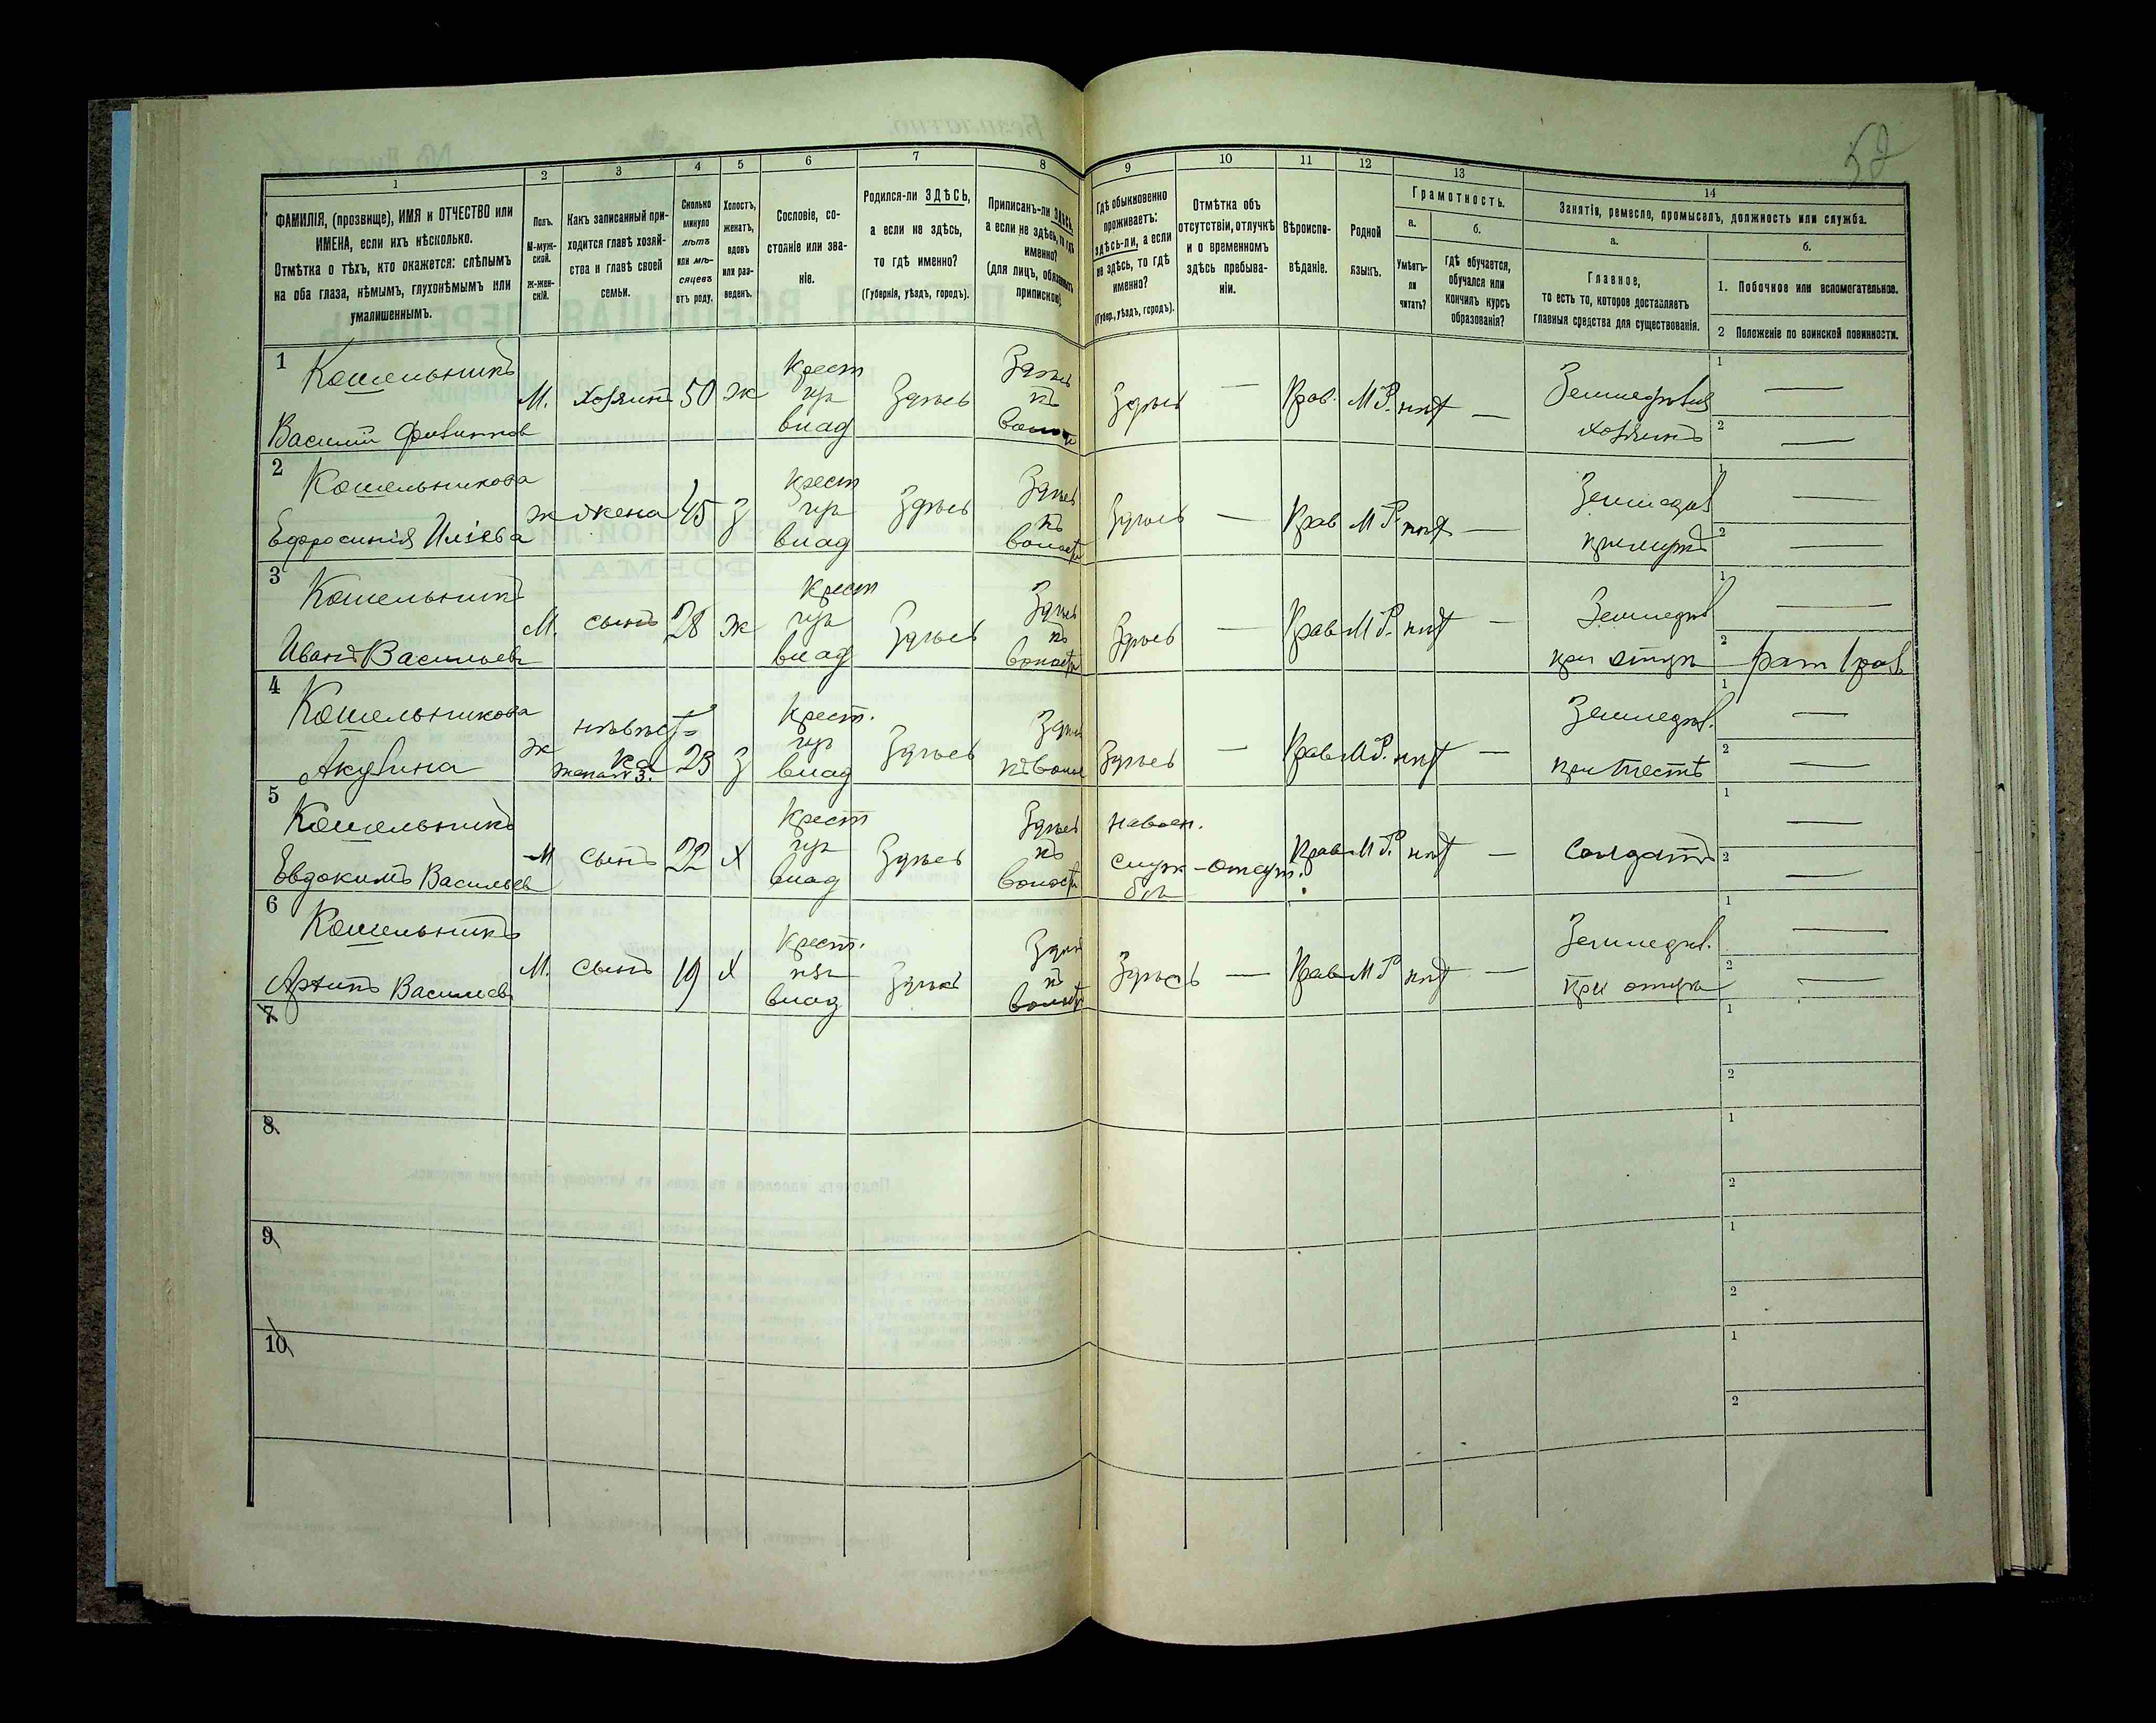 52
1
2
3
4
5
6
7
8
9
10
11
12
13
14
ФАМИЛІЯ, (прозвище), ИМЯ и ОТЧЕСТВО или
ИМЕНА, если ихъ нѣсколько.
Отмѣтка о тѣхъ, кто окажется: слѣпымъ
на оба глаза, нѣмымъ, глухонѣмымъ или
умалишеннымъ.
Полъ.
М-муж-
ской.
Ж-жен-
скій.
Какъ записанный при-
ходится главѣ хозяй-
ства и главѣ своей
семьи.
Сколько
минуло
лѣтъ
или мѣ-
сяцевъ
отъ роду.
Холостъ,
женатъ,
вдовъ
или раз-
веденъ.
Сословіе, со-
стояніе или зва-
ніе.
Родился-ли ЗДѢСЬ,
а если не здѣсь,
то гдѣ именно?
(Губернія, уѣздъ, городъ).
Приписанъ-ли ЗДѢСЬ,
а если не здѣсь, то гдѣ
именно?
(для лицъ, обязанныхъ
припискою).
Гдѣ обыкновенно
проживаетъ:
здѣсь-ли, а если
не здѣсь, то гдѣ
именно?
(Губер., уѣздъ, городъ).
Отмѣтка объ
отсутствіи, отлучкѣ
и о временномъ
здѣсь пребыва-
ніи.
Вѣроиспо-
вѣданіе.
Родной
языкъ.
Грамотность.
а.
Умѣетъ-
ли
читать?
б.
гдѣ обучается,
обучался или
кончилъ курсъ
образованія?
Занятія, ремесло, промыселъ, должность или служба.
а.
Главное,
то есть то, которое доставляетъ
главныя средства для существованія.
б.
1. Побочное или вспомогательное.
2 Положеніе по воинской повинности.
1
Кошельникъ
Василій
М. хозяинъ 50 ж
Крест
влад
Здѣсь
Здѣсь
Здѣсь — Прав. М Р. нѣт —
хозяинъ
1 —
2 —
2
Кошельникова
Ефросинія Иліева
ж жена 45 З
Крест
влад
Здѣсь
Здѣсь
волости
Здѣсь — Прав М Р. нѣт —
Земледѣл
при мужѣ
1 —
2 —
3
Кошельникъ
Иванъ Васильевъ
М. сынъ 28 ж
Крест
влад
Здѣсь
Здѣсь
волости
Здѣсь — Прав М Р. нѣт —
Земледѣл
при отцѣ
1 —
2 рат 1 раз
4
Кошельникова
Акулина
ж невѣст=
ка
жена N 3.
23 З
Крест.
влад
Здѣсь
Здѣсь
Здѣсь — Прав М Р. нѣт —
Земледѣл.
1 —
2 —
5
Кошельникъ
Евдокимъ Васильев
М сынъ 22 Х
Крест
влад
Здѣсь
Здѣсь
волости
на воен.
служ
бѣ
— отсут.
Прав М Р. нѣт —
Солдатъ
1 —
2 —
6
Кошельникъ
Архипъ Васильевъ
М. сынъ 19 Х
Крест.
влад
Здѣсь
Здѣсь
Здѣсь — Прав М Р нѣт —
Земледѣл.
при отцѣ
1 —
2 —
7
1
2
8
1
2
9
1
2
10
1
2